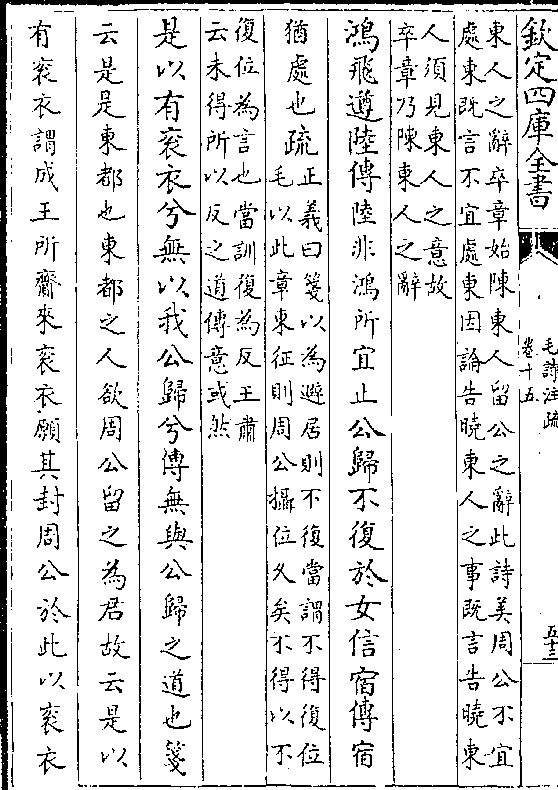 欽定四庫全書
毛詩注疏
卷十五
五十三
東人之辭卒章始陳東人留公之辭此詩美周公不宜
處東既言不宜處東因論告曉東人之事既言告曉東
人須見東人之意故
卒章乃陳東人之辭
鴻飛遵陸傳陸非鴻所宜止公歸不復於女信宿傳宿
猶處也疏
正義曰箋以為避居則不復當謂不得復位
毛以此章東征則周公攝位久矣不得以不
復位為言也當訓復為反王肅
云未得所以反之道傳意或然
是以有衮衣兮無以我公歸兮傳無與公歸之道也箋
云是是東都也東都之人欲周公留之為君故云是以
有衮衣謂成王所齎來衮衣願其封周公於此以衮衣